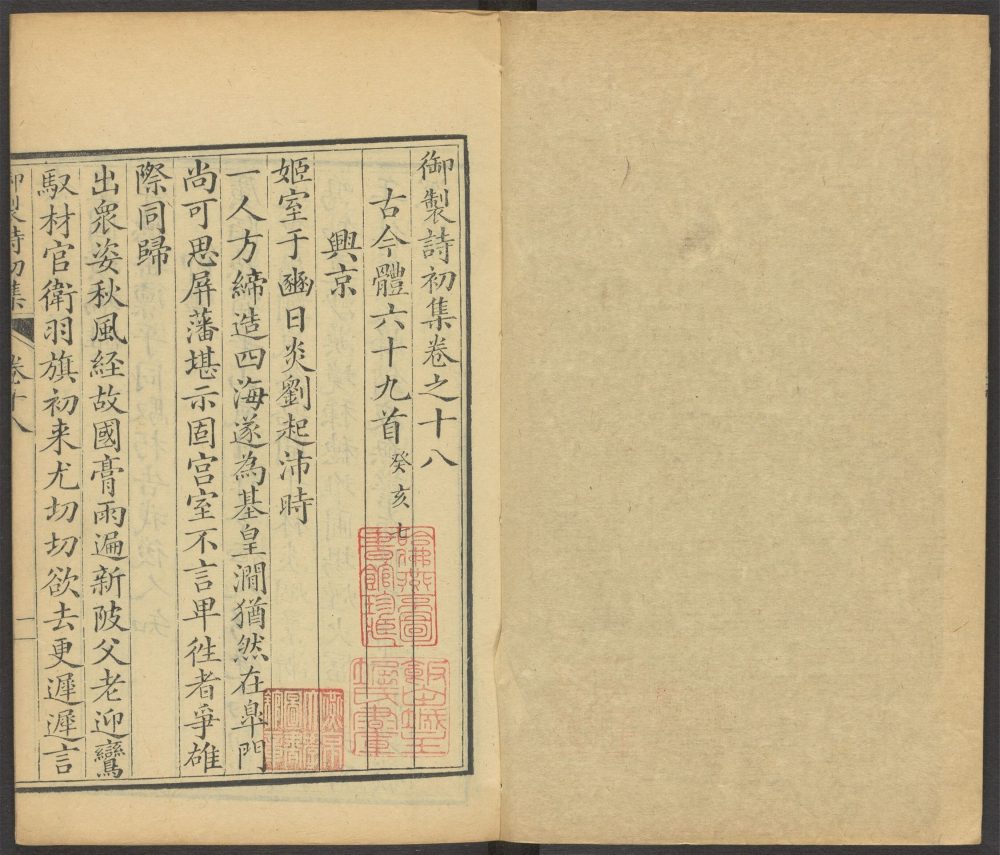 御製詩初集卷之十八
古今體六十九首癸亥七
興京
姬室于豳日炎劉起沛時
一人方締造四海遂為基皇澗猶然在臯門
尚可思屏藩堪示固宫室不言卑徃者爭雄
際同歸
出衆姿秋風経故國膏雨遍新陂父老迎鸞
馭材官衛羽旗初来尤切切欲去更遲遲言
御製詩初集
卷十八
一